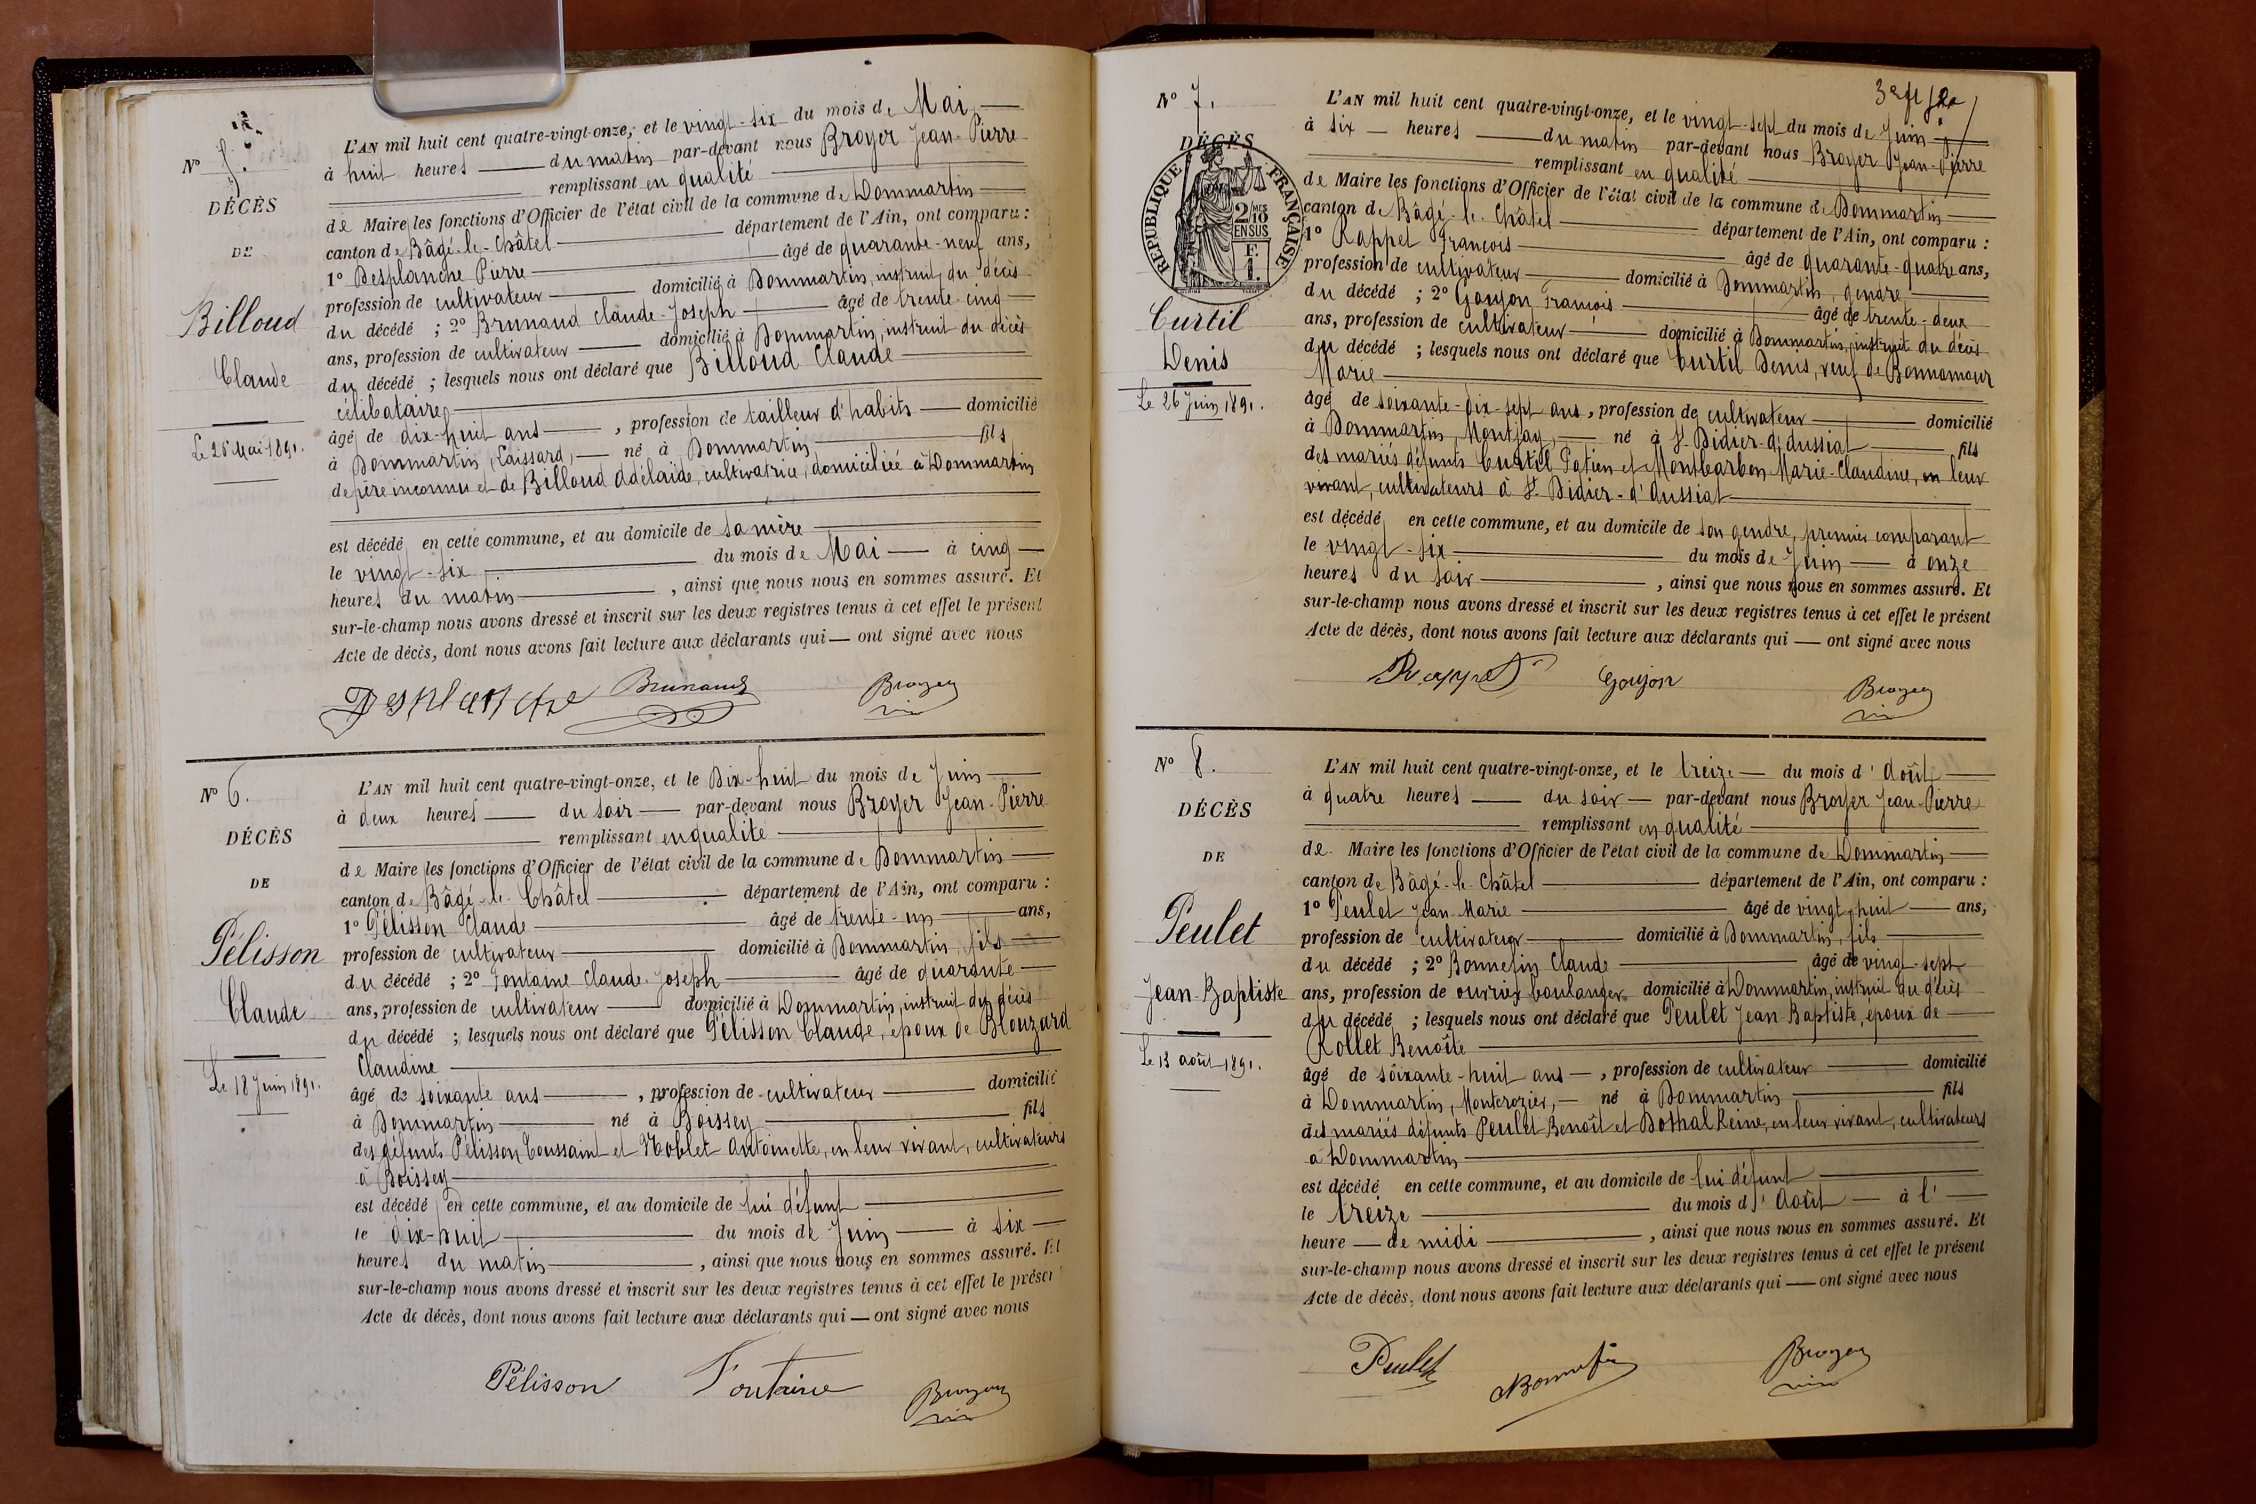 N° 5.
DÉCÈS
DE
Billoud
Claude
Le 26 Mai 1891.
L'AN mil huit cent quatre-vingt-onze, et le vingt-six du mois de Mai
à huit heures du matin par-devant nous Broyer Jean-Pierre
remplissant en qualité
de Maire les fonctions d'Officier de l'état civil de la commune de Dommartin
canton de Bâgé-le-Châtel département de l'Ain, ont comparu :
1° Desplanche Pierre âgé de quarante-neuf ans,
profession de cultivateur domicilié à Dommartin, instruit du décès
du décédé ; 2° Brunaud Claude-Joseph âgé de trente-cinq
ans, profession de cultivateur domicilié à Dommartin, instruit du décès
du décédé ; lesquels nous ont déclaré que Billoud Claude
célibataire
âgé de dix-huit ans , profession de tailleur d'habits domicilié
à Dommartin, Caissard, né à Dommartin fils
de père inconnu et de Billoud Adélaïde, cultivatrice, domiciliée à Dommartin
est décédé en cette commune, et au domicile de sa mère
le vingt-six du mois de Mai à cinq
heures du matin , ainsi que nous nous en sommes assuré. Et
sur-le-champ nous avons dressé et inscrit sur les deux registres tenus à cet effet le présent
Acte de décès, dont nous avons fait lecture aux déclarants qui ont signé avec nous
Desplanche Brunaud Broyer
N° 6.
DÉCÈS
DE
Pélisson
Claude
Le 18 Juin 1891.
L'AN mil huit cent quatre-vingt-onze, et le Dix-huit du mois de Juin
à deux heures du soir par-devant nous Broyer Jean-Pierre
remplissant en qualité
de Maire les fonctions d'Officier de l'état civil de la commune de Dommartin
canton de Bâgé-le-Châtel département de l'Ain, ont comparu :
1° Pélisson Claude âgé de trente-un ans,
profession de cultivateur domicilié à Dommartin, fils
du décédé ; 2° Fontaine Claude-Joseph âgé de quarante
ans, profession de cultivateur domicilié à Dommartin, instruit du décès
du décédé ; lesquels nous ont déclaré que Pélisson Claude, époux de Blouzard
Claudine
âgé de soixante ans , profession de cultivateur domicilié
à Dommartin né à Boissey fils
des défunts Pélisson Toussaint et Noblet Antoinette, en leur vivant, cultivateurs
à Boissey
est décédé en cette commune, et au domicile de lui défunt
le dix-huit du mois de Juin à six
heures du matin , ainsi que nous nous en sommes assuré. Et
sur-le-champ nous avons dressé et inscrit sur les deux registres tenus à cet effet le présent
Acte de décès, dont nous avons fait lecture aux déclarants qui ont signé avec nous
Pélisson Fontaine Broyer
N° 7.
DÉCÈS
RÉPUBLIQUE FRANÇAISE
2/10 MES
EN SUS
F.
1.
Curtil
Denis
Le 26 Juin 1891.
L'AN mil huit cent quatre-vingt-onze, et le vingt-sept du mois de Juin
à six heures du matin par-devant nous Broyer Jean-Pierre
remplissant en qualité
de Maire les fonctions d'Officier de l'état civil de la commune de Dommartin
canton de Bâgé-le-Châtel département de l'Ain, ont comparu :
1° Rappet François âgé de quarante-quatre ans,
profession de cultivateur domicilié à Dommartin, gendre
du décédé ; 2° Goujon François âgé de trente-deux
ans, profession de cultivateur domicilié à Dommartin, instruit du décès
du décédé ; lesquels nous ont déclaré que Curtil Denis, veuf de Bonnamour
Marie
âgé de soixante-dix-sept ans, profession de cultivateur domicilié
à Dommartin, Montfay, né à St-Didier-d'Aussiat fils
des mariés défunts Curtil Patien et Montbarbon Marie-Claudine, en leur
vivant, cultivateurs à St-Didier-d'Aussiat
est décédé en cette commune, et au domicile de son gendre, premier comparant
le vingt-six du mois de Juin à onze
heures du soir , ainsi que nous nous en sommes assuré. Et
sur-le-champ nous avons dressé et inscrit sur les deux registres tenus à cet effet le présent
Acte de décès, dont nous avons fait lecture aux déclarants qui ont signé avec nous
Rappet Goujon Broyer
N° 8.
DÉCÈS
DE
Peulet
Jean-Baptiste
Le 13 août 1891.
L'AN mil huit cent quatre-vingt-onze, et le treize du mois d'Août
à quatre heures du soir par-devant nous Broyer Jean-Pierre
remplissant en qualité
de Maire les fonctions d'Officier de l'état civil de la commune de Dommartin
canton de Bâgé-le-Châtel département de l'Ain, ont comparu :
1° Peulet Jean-Marie âgé de vingt-huit ans,
profession de cultivateur domicilié à Dommartin, fils
du décédé ; 2° Bonnefin Claude âgé de vingt-sept
ans, profession de ouvrier boulanger domicilié à Dommartin, instruit du décès
du décédé ; lesquels nous ont déclaré que Peulet Jean-Baptiste, époux de
Rollet Benoîte
âgé de soixante-huit ans , profession de cultivateur domicilié
à Dommartin, Montcrozier, né à Dommartin fils
des mariés défunts Peulet Benoît et Bothal Reine, en leur vivant, cultivateurs
à Dommartin
est décédé en cette commune, et au domicile de lui défunt
le treize du mois d'Août à l'
heure de midi , ainsi que nous nous en sommes assuré. Et
sur-le-champ nous avons dressé et inscrit sur les deux registres tenus à cet effet le présent
Acte de décès, dont nous avons fait lecture aux déclarants qui ont signé avec nous
Peulet Bonnefin Broyer